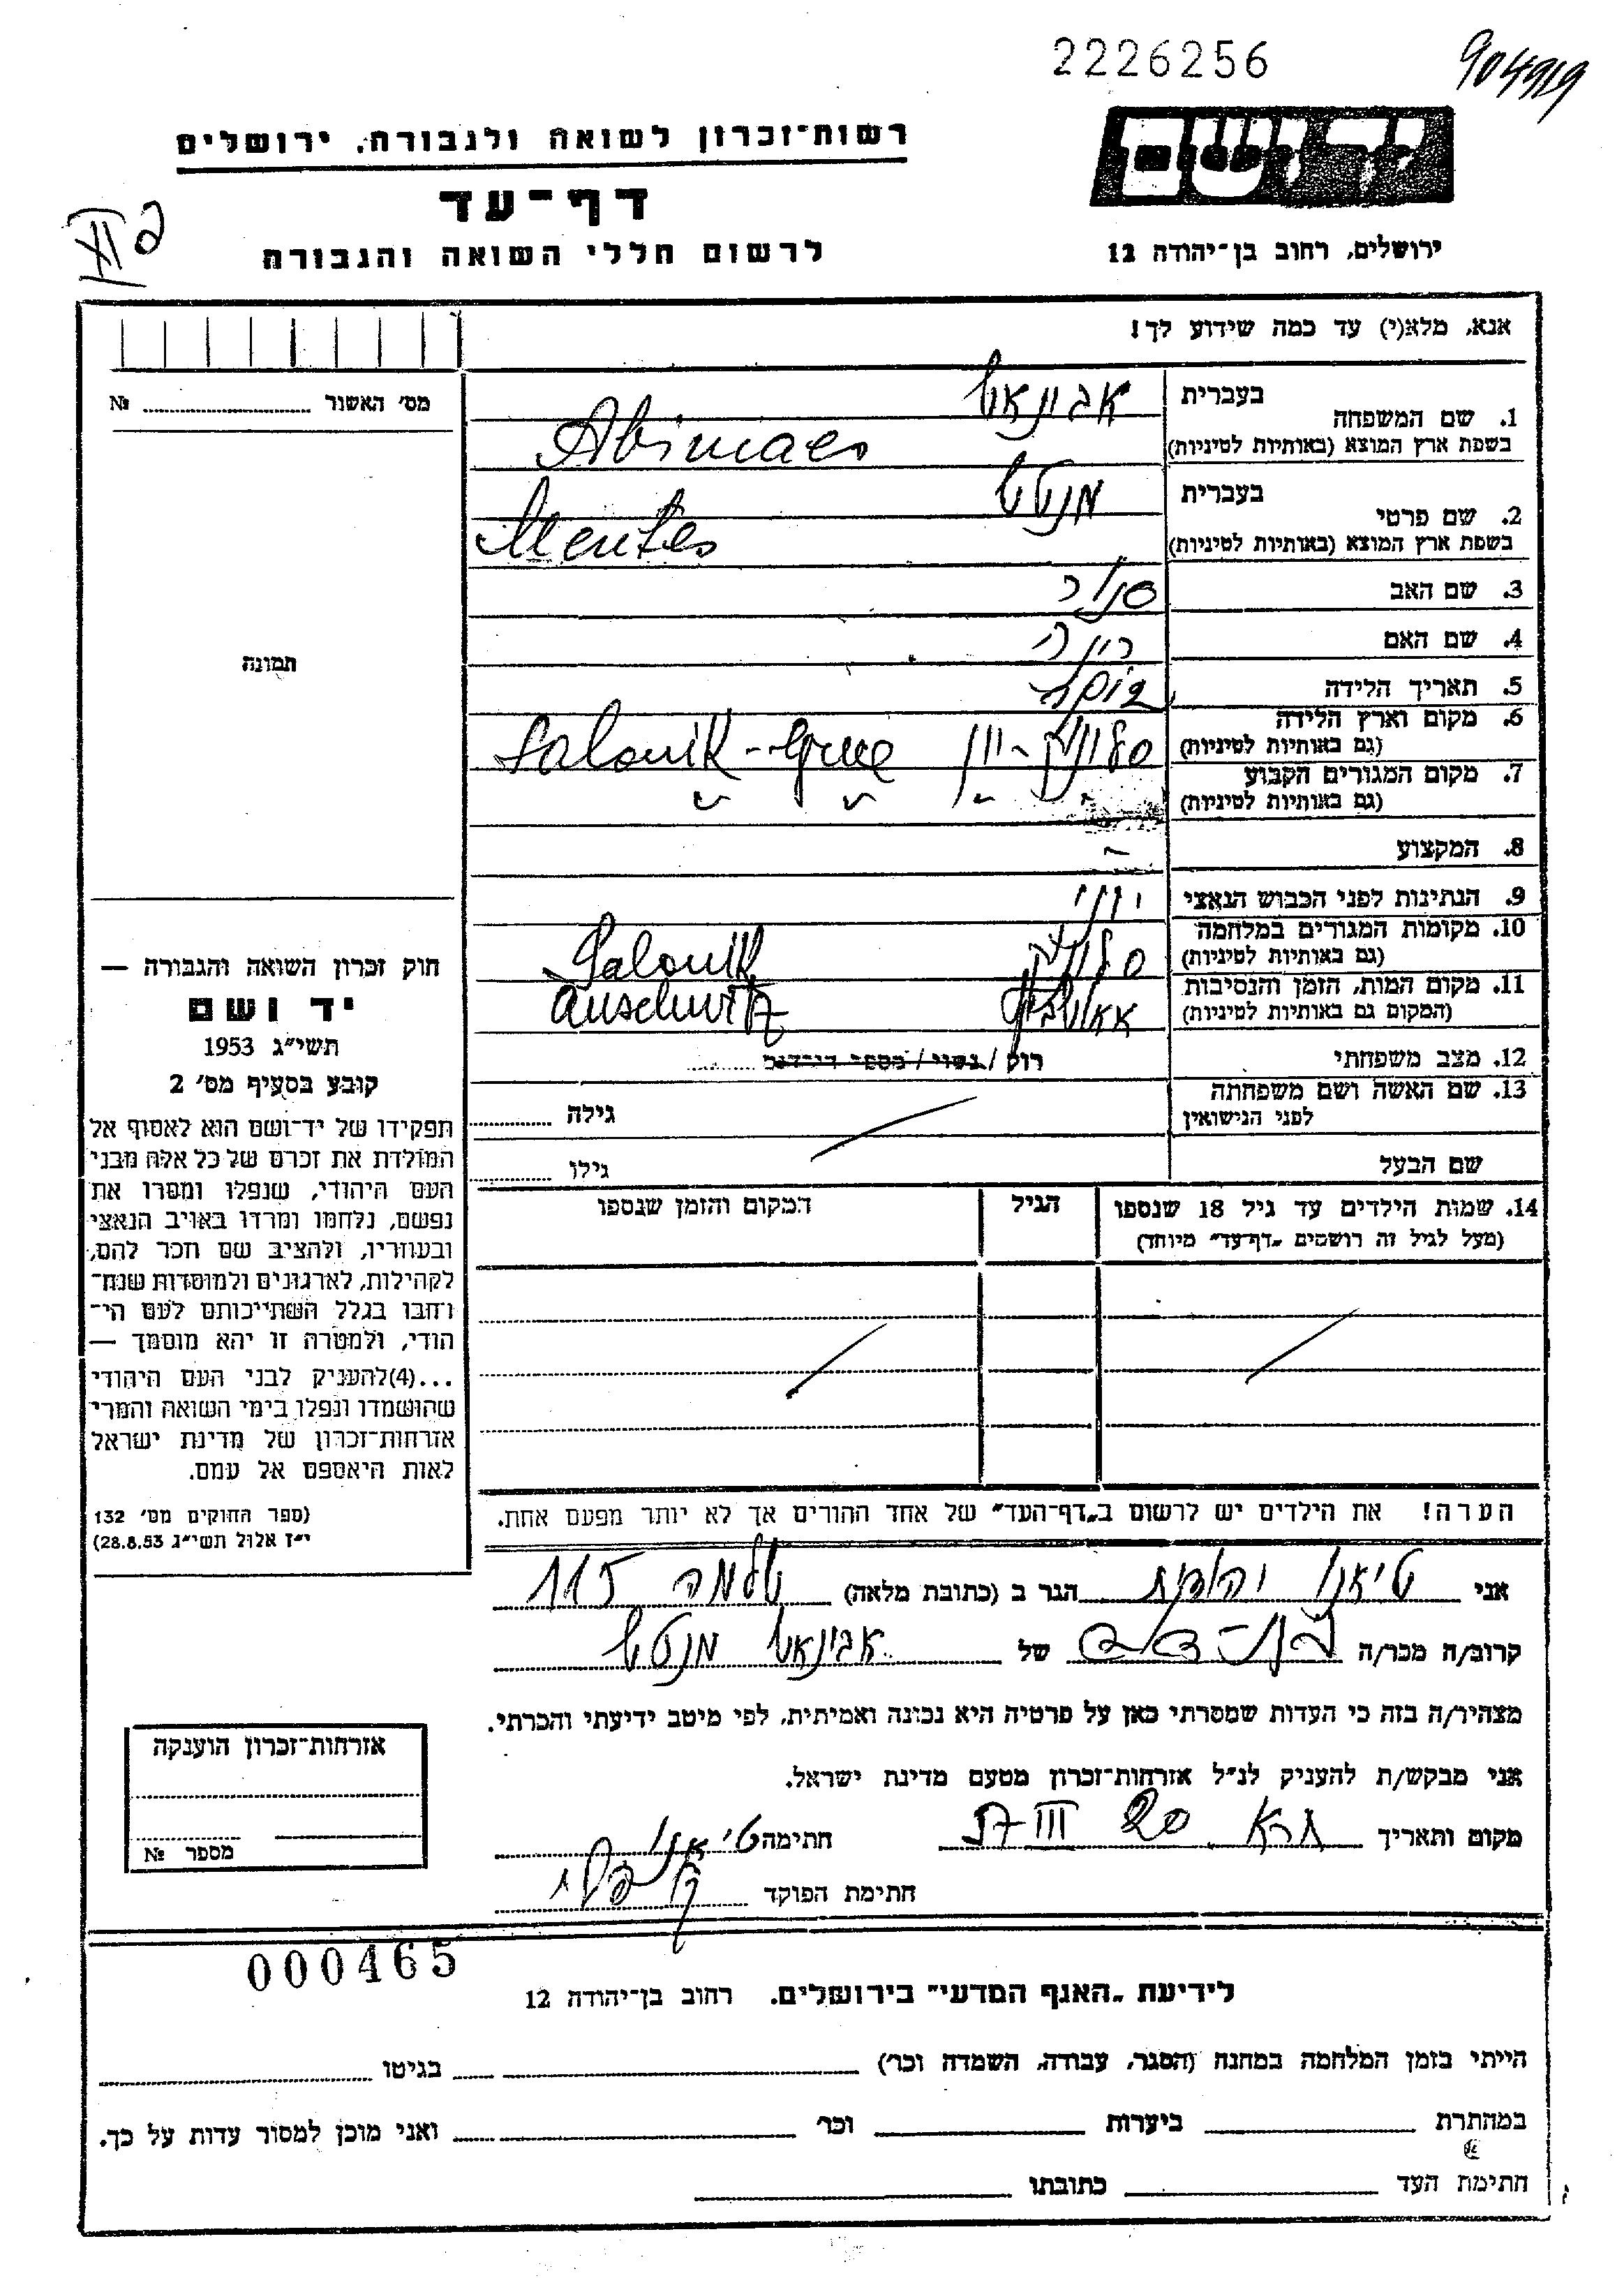 2226256
904919
יד ושם
רשות־זכרון לשואה ולגבורה, ירושלים
דף־עד
ירושלים, רחוב בן־יהודה 12
לרשום חללי השואה והגבורה
אנא, מלא(י) עד כמה שידוע לך!
1. שם המשפחה בעברית אבינאש
בשפת ארץ המוצא (באותיות לטיניות) Abinaes
2. שם פרטי בעברית מנטש
בשפת ארץ המוצא (באותיות לטיניות) Mentes
3. שם האב
4. שם האם
5. תאריך הלידה
6. מקום וארץ הלידה סלוניק - יון Salonik -
(גם באותיות לטיניות)
7. מקום המגורים הקבוע
(גם באותיות לטיניות)
8. המקצוע -
9. הנתינות לפני הכבוש הנאצי יוני
10. מקומות המגורים במלחמה סלוניק Salonik
(גם באותיות לטיניות)
11. מקום המות, הזמן והנסיבות אאושביץ Auschwitz
(המקום גם באותיות לטיניות)
12. מצב משפחתי רוק / נשוי / מספר הילדים
13. שם האשה ושם משפחתה גילה
לפני הנישואין
שם הבעל גילו
14. שמות הילדים עד גיל 18 שנספו הגיל המקום והזמן שנספו
(מעל לגיל זה רושמים „דף־עד" מיוחד)
הערה! את הילדים יש לרשום ב„דף־העד" של אחד ההורים אך לא יותר מפעם אחת.
מס׳ האשור №
תמונה
חוק זכרון השואה והגבורה —
יד ושם
תשי״ג 1953
קובע בסעיף מס׳ 2
תפקידו של יד־ושם הוא לאסוף אל
המולדת את זכרם של כל אלה מבני
העם היהודי, שנפלו ומסרו את
נפשם, נלחמו ומרדו באויב הנאצי
ובעוזריו, ולהציב שם וזכר להם,
לקהילות, לארגונים ולמוסדות שנח־
רבו בגלל השתייכותם לעם הי־
הודי, ולמטרה זו יהא מוסמך —
...(4) להעניק לבני העם היהודי
שהושמדו ונפלו בימי השואה והמרי
אזרחות־זכרון של מדינת ישראל
לאות היאספם אל עמם.
(ספר החוקים מס׳ 132
י״ז אלול תשי״ג 28.8.53)
אני טיאנו יהודית הגר ב (כתובת מלאה) שלמה 115
קרוב/ה מכר/ה בת-דוד של אבינאש מנטש
מצהיר/ה בזה כי העדות שמסרתי כאן על פרטיה היא נכונה ואמיתית, לפי מיטב ידיעתי והכרתי.
אני מבקש/ת להעניק לנ״ל אזרחות־זכרון מטעם מדינת ישראל.
מקום ותאריך 20 III 57 חתימה טיאנו
חתימת הפוקד
אזרחות־זכרון הוענקה
מספר №
000465
לידיעת „האגף המדעי" בירושלים. רחוב בן־יהודה 12
הייתי בזמן המלחמה במחנה (הסגר, עבודה, השמדה וכו׳) בגיטו
במחתרת ביערות וכו׳ ואני מוכן למסור עדות על כך.
חתימת העד כתובתו